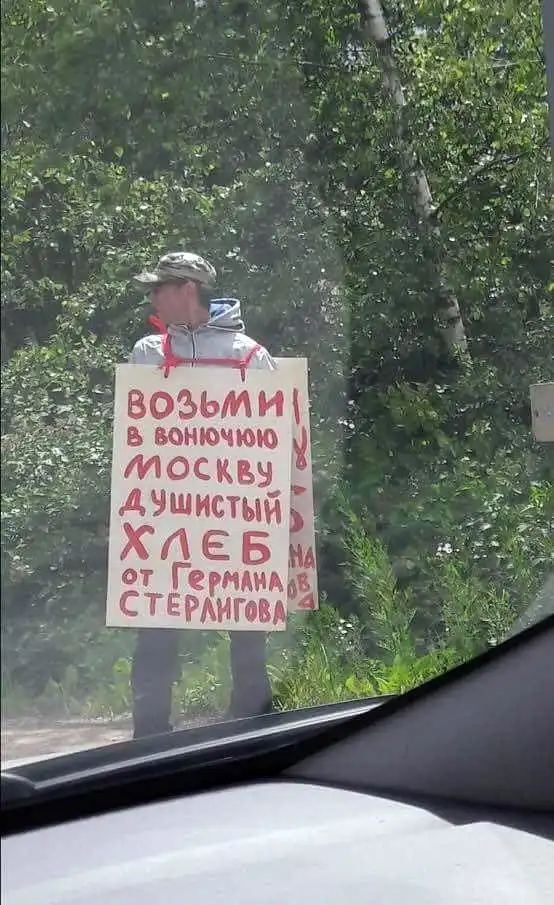 ВОЗЬМИ
В ВОНЮЧЮЮ
МОСКВУ
ДУШИСТЫЙ
ХЛЕБ
от ГЕРМАНА
СТЕРЛИГОВА